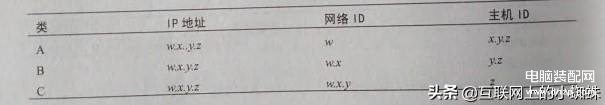 类 IP 地址 网络 ID 主机 ID
A w.x..y.z w x.y.z
B w.x.y.z w.x y.z
C w.x.y.z w.x.y z
电脑装配网
头条 @互联网上的小蜘蛛